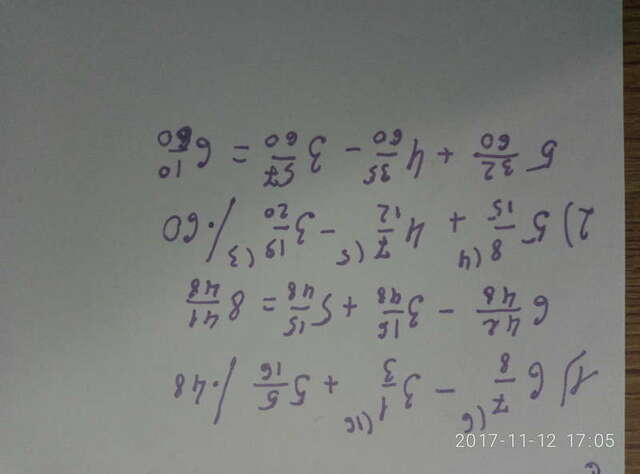 1) 6 7/8 (6 − 3 1/3 (16 + 5 5/16 /·48
6 42/48 − 3 16/48 + 5 15/48 = 8 41/48
2) 5 8/15 (4 + 4 7/12 (5 − 3 19/20 (3 /·60
5 32/60 + 4 35/60 − 3 57/60 = 6 10/60
2017-11-12 17:05